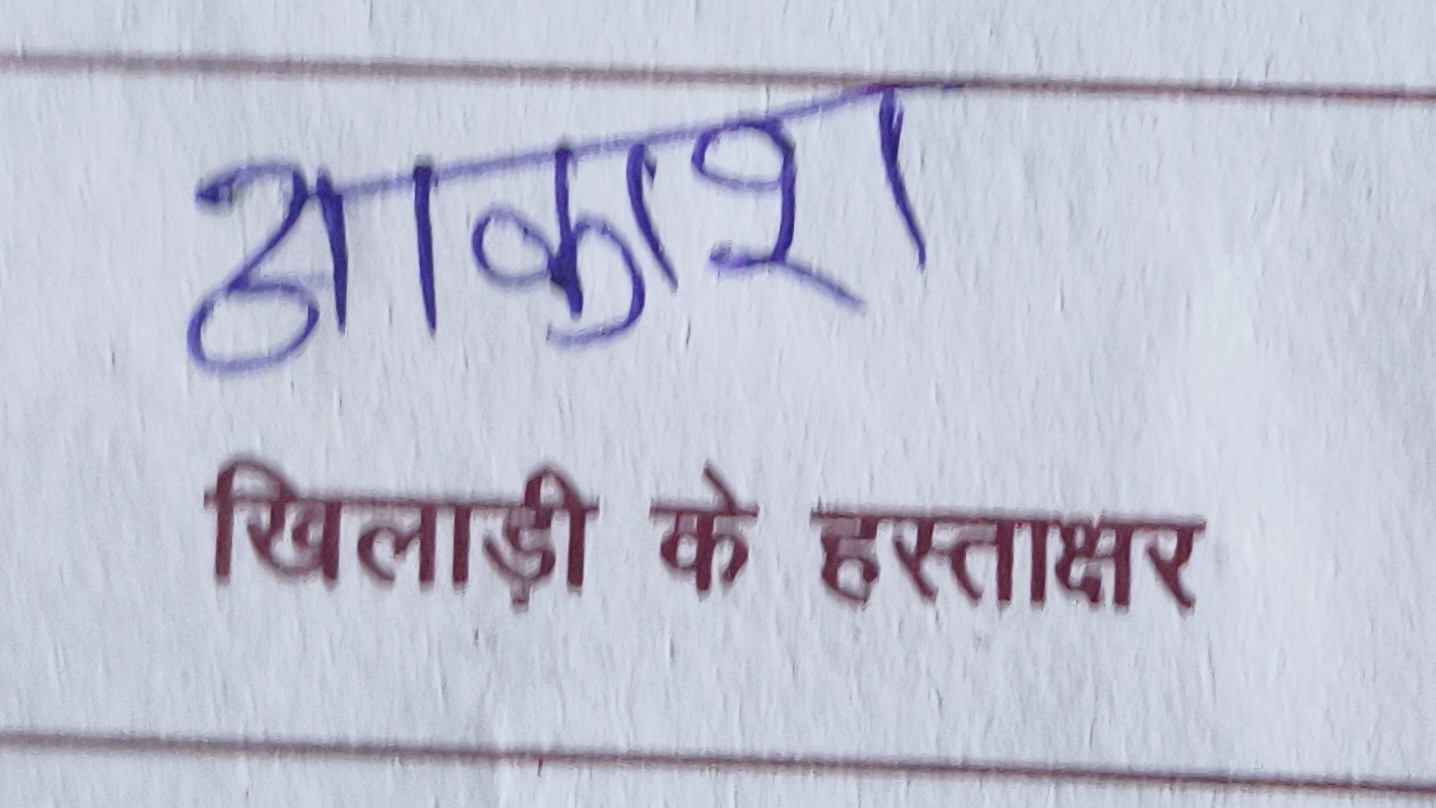 आकाश
खिलाड़ी के हस्ताक्षर